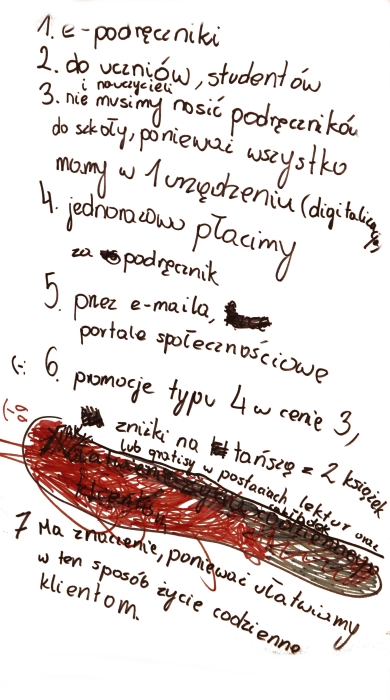 1. e-podręczniki
2. do uczniów, studentów
i nauczycieli
3. nie musimy nosić podręczników
do szkoły, ponieważ wszystko
mamy w 1 urządzeniu (digitalizacja)
4. jednorazowo płacimy
za podręcznik
5. przez e-maila,
portale społecznościowe
(-: 6. promocje typu 4 w cenie 3,
zniżki na tańszą z 2 książek
lub gratisy w postaciach lektur oraz
7 Ma znaczenie, ponieważ ułatwiamy
w ten sposób życie codzienne
klientom.